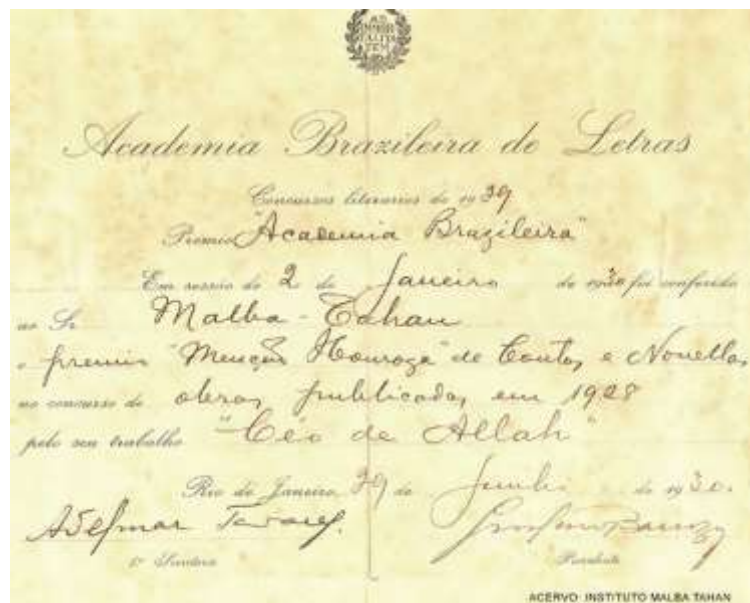 AD
IMMOR
TALITA
TEM
Academia Brazileira de Letras
Concursos literarios de 1939
Premio "Academia Brazileira"
Em sessão de 2 de Janeiro de 1930 foi conferido
ao Sr. Malba-Tahan
o premio "Menção Honroza" de Contos e Novellas
no concurso de obras publicadas em 1928
pelo seu trabalho "Céo de Allah"
Rio de Janeiro, 29 de Junho de 1930.
Adelmar Tavares.
1º Secretario Presidente
ACERVO: INSTITUTO MALBA TAHAN